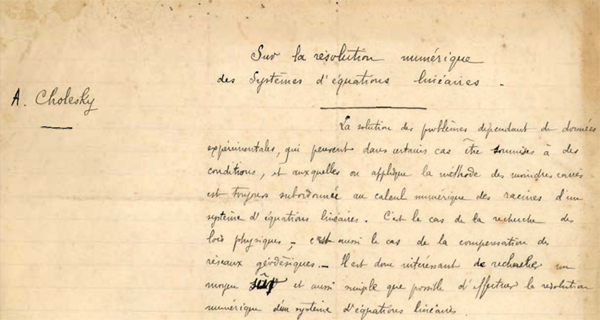 Sur la résolution numérique
des Systèmes d'équations linéaires.
A. Cholesky
La solution des problèmes dépendant de données
expérimentales, qui peuvent dans certains cas être soumises à des
conditions, et auxquelles on applique la méthode des moindres carrés
est toujours subordonnée au calcul numérique des racines d'un
système d'équations linéaires. C'est le cas de la recherche des
lois physiques, c'est aussi le cas de la compensation des
réseaux géodésiques. Il est donc intéressant de rechercher un
moyen sûr et aussi simple que possible d'effectuer la résolution
numérique d'un système d'équations linéaires.